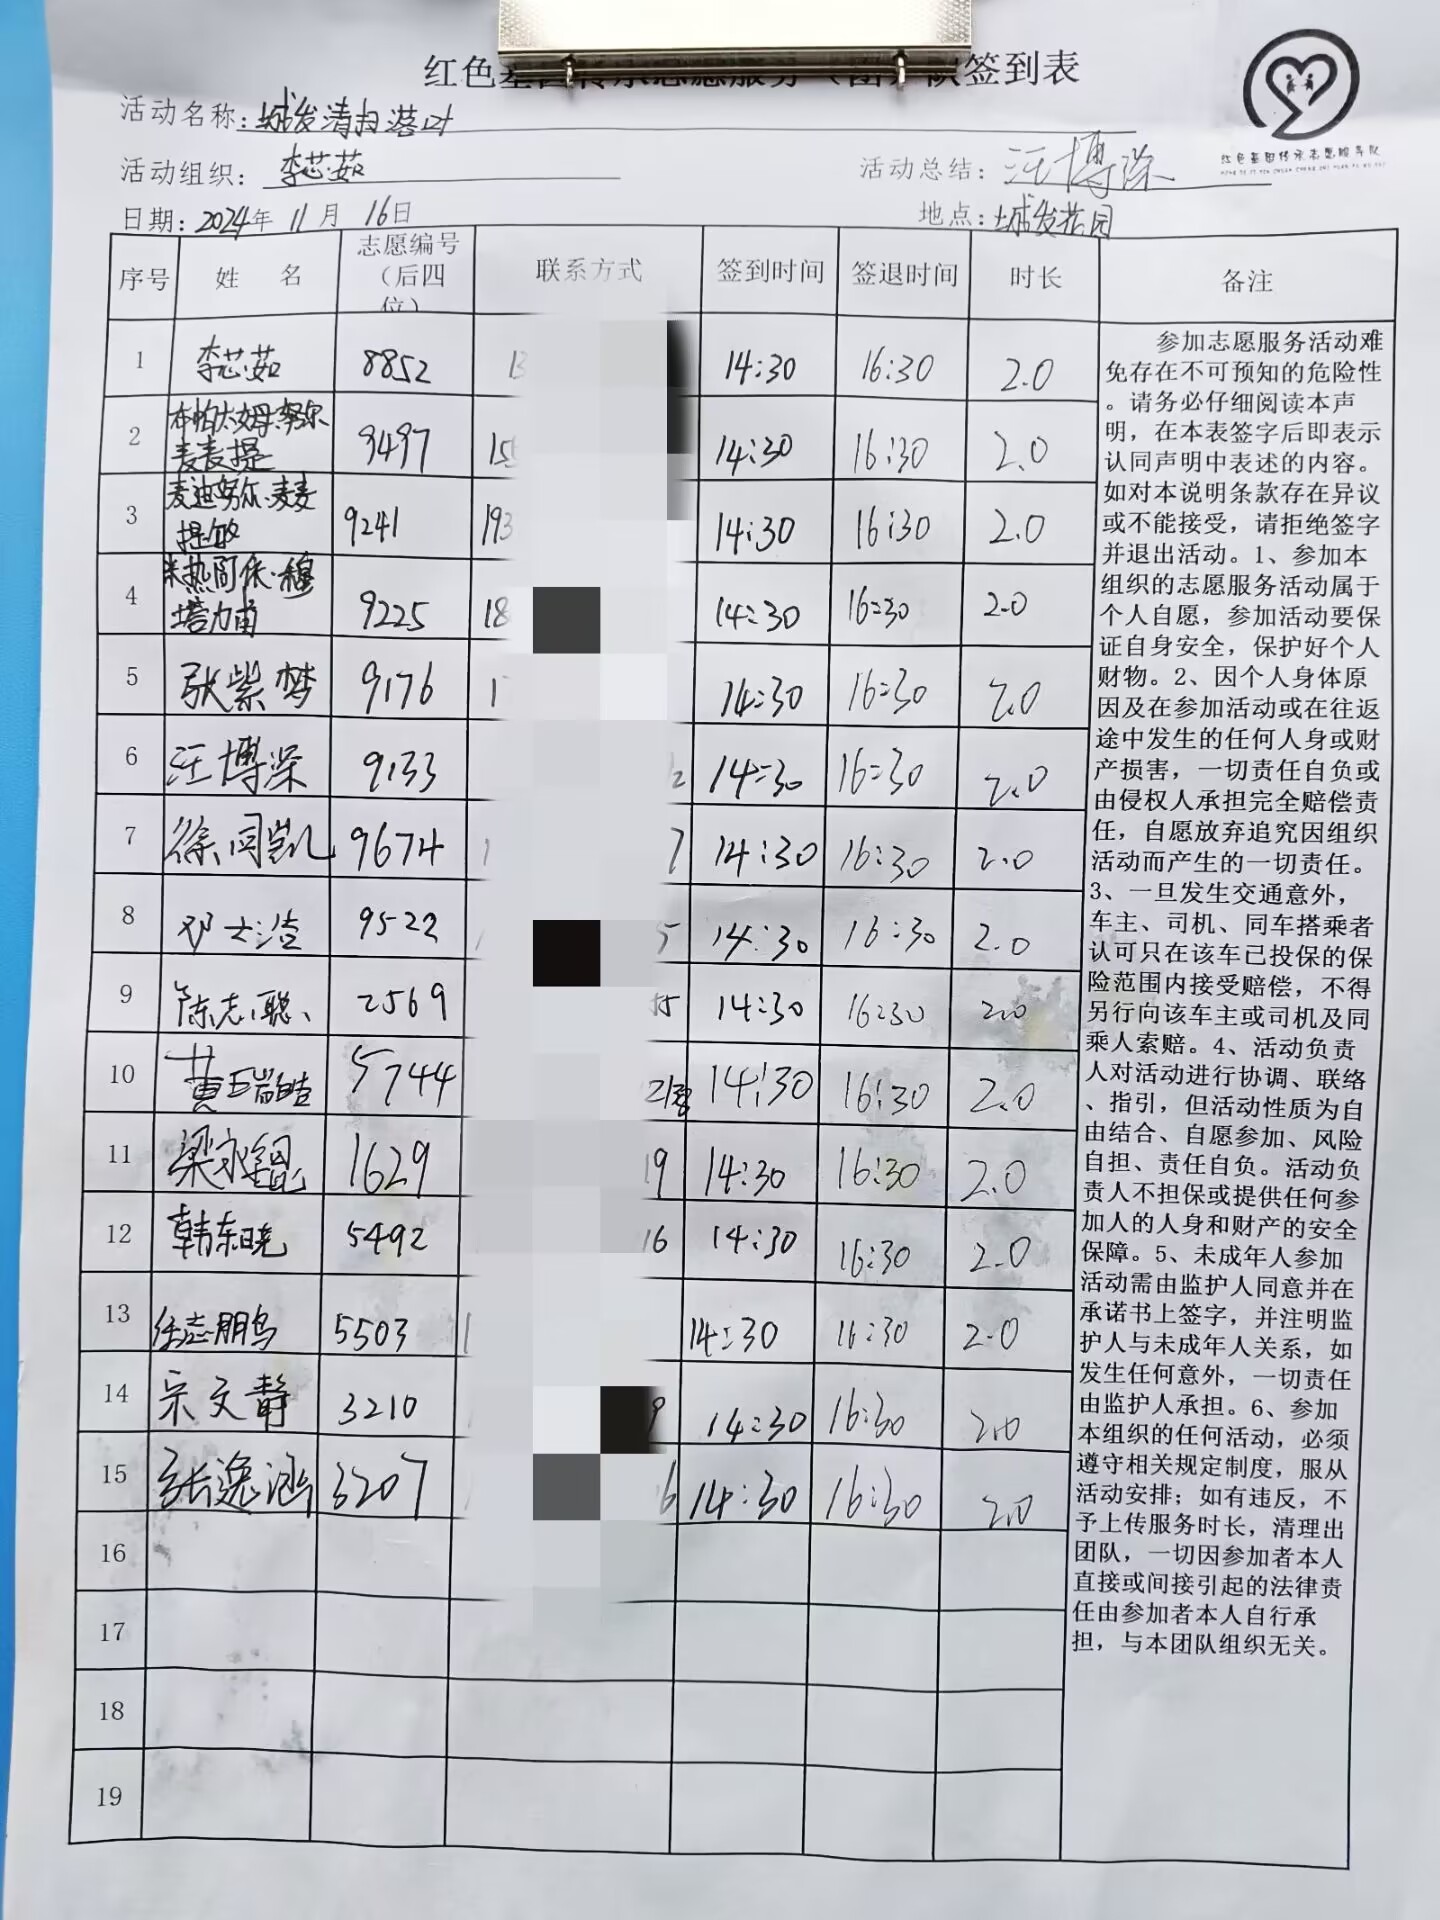 红色基因传承志愿服务（团）队签到表
红色基因传承志愿服务队
活动名称：城发清扫落叶
活动组织：李芯茹 活动总结：汪博深
日期：2024年 11月 16日 地点：城发花园
序号 姓 名 志愿编号（后四位） 联系方式 签到时间 签退时间 时长 备注
1 李芯茹 8852 13 14:30 16:30 2.0
2 布帕太姆·努尔麦麦提 9497 155 14:30 16:30 2.0
3 麦迪努尔·麦麦提敏 9241 193 14:30 16:30 2.0
4 米热阿依·穆塔力甫 9225 18 14:30 16:30 2.0
5 张紫梦 9176 1 14:30 16:30 2.0
6 汪博深 9133 2 14:30 16:30 2.0
7 徐闫凯 9674 1 7 14:30 16:30 2.0
8 邓士浩 9522 1 5 14:30 16:30 2.0
9 陈志聪 2569 55 14:30 16:30 2.0
10 黄瑞皓 5744 14:30 16:30 2.0
11 梁永锟 1629 19 14:30 16:30 2.0
12 韩东晓 5492 16 14:30 16:30 2.0
13 任志朋 5503 1 14:30 16:30 2.0
14 宋文静 3210 9 14:30 16:30 2.0
15 张逸涵 3207 6 14:30 16:30 2.0
16
17
18
19
参加志愿服务活动难
免存在不可预知的危险性
。请务必仔细阅读本声
明，在本表签字后即表示
认同声明中表述的内容。
如对本说明条款存在异议
或不能接受，请拒绝签字
并退出活动。1、参加本
组织的志愿服务活动属于
个人自愿，参加活动要保
证自身安全，保护好个人
财物。2、因个人身体原
因及在参加活动或在往返
途中发生的任何人身或财
产损害，一切责任自负或
由侵权人承担完全赔偿责
任，自愿放弃追究因组织
活动而产生的一切责任。
3、一旦发生交通意外，
车主、司机、同车搭乘者
认可只在该车已投保的保
险范围内接受赔偿，不得
另行向该车主或司机及同
乘人索赔。4、活动负责
人对活动进行协调、联络
、指引，但活动性质为自
由结合、自愿参加、风险
自担、责任自负。活动负
责人不担保或提供任何参
加人的人身和财产的安全
保障。5、未成年人参加
活动需由监护人同意并在
承诺书上签字，并注明监
护人与未成年人关系，如
发生任何意外，一切责任
由监护人承担。6、参加
本组织的任何活动，必须
遵守相关规定制度，服从
活动安排；如有违反，不
予上传服务时长，清理出
团队，一切因参加者本人
直接或间接引起的法律责
任由参加者本人自行承
担，与本团队组织无关。